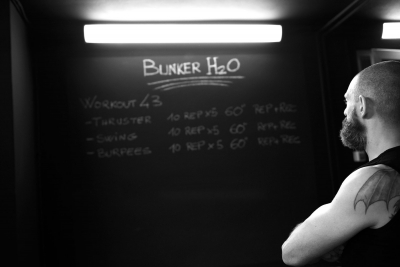 BUNKER H2O
WORKOUT 43
- THRUSTER 10 REP x 5 60" REP+REC
- SWING 10 REP x 5 60" REP+REC
- BURPEES 10 REP x 5 60" REP+REC